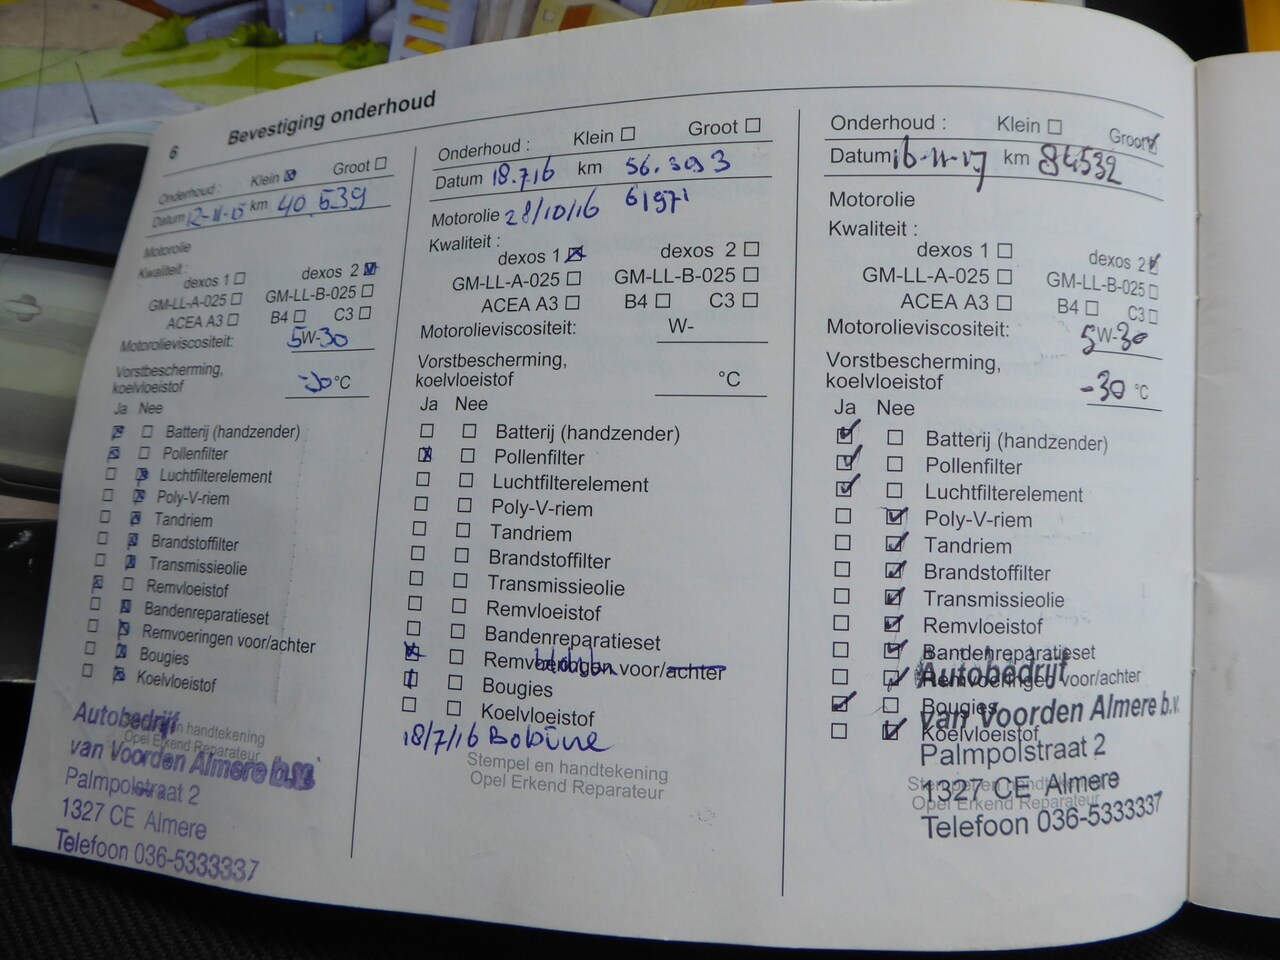 6 Bevestiging onderhoud
Onderhoud : Klein Groot
Datum 12-11-15 km 40 539
Motorolie
Kwaliteit :
dexos 1 dexos 2
GM-LL-A-025 GM-LL-B-025
ACEA A3 B4 C3
Motorolieviscositeit: 5W-30
Vorstbescherming,
koelvloeistof -30 °C
Ja Nee
Batterij (handzender)
Pollenfilter
Luchtfilterelement
Poly-V-riem
Tandriem
Brandstoffilter
Transmissieolie
Remvloeistof
Bandenreparatieset
Remvoeringen voor/achter
Bougies
Koelvloeistof
Stempel en handtekening
Opel Erkend Reparateur
Autobedrijf
van Voorden Almere b.v.
Palmpolstraat 2
1327 CE Almere
Telefoon 036-5333337
Onderhoud : Klein Groot
Datum 18.7.16 km 56.393
Motorolie 28/10/16 61971
Kwaliteit :
dexos 1 dexos 2
GM-LL-A-025 GM-LL-B-025
ACEA A3 B4 C3
Motorolieviscositeit: W-
Vorstbescherming,
koelvloeistof °C
Ja Nee
Batterij (handzender)
Pollenfilter
Luchtfilterelement
Poly-V-riem
Tandriem
Brandstoffilter
Transmissieolie
Remvloeistof
Bandenreparatieset
Remvoeringen voor/achter
Bougies
Koelvloeistof
18/7/16 Bobine
Stempel en handtekening
Opel Erkend Reparateur
Onderhoud : Klein Groot
Datum 16-11-17 km 84532
Motorolie
Kwaliteit :
dexos 1 dexos 2
GM-LL-A-025 GM-LL-B-025
ACEA A3 B4 C3
Motorolieviscositeit: 5W-30
Vorstbescherming,
koelvloeistof -30 °C
Ja Nee
Batterij (handzender)
Pollenfilter
Luchtfilterelement
Poly-V-riem
Tandriem
Brandstoffilter
Transmissieolie
Remvloeistof
Bandenreparatieset
Remvoeringen voor/achter
Bougies
Koelvloeistof
Stempel en handtekening
Opel Erkend Reparateur
Autobedrijf
van Voorden Almere b.v.
Palmpolstraat 2
1327 CE Almere
Telefoon 036-5333337